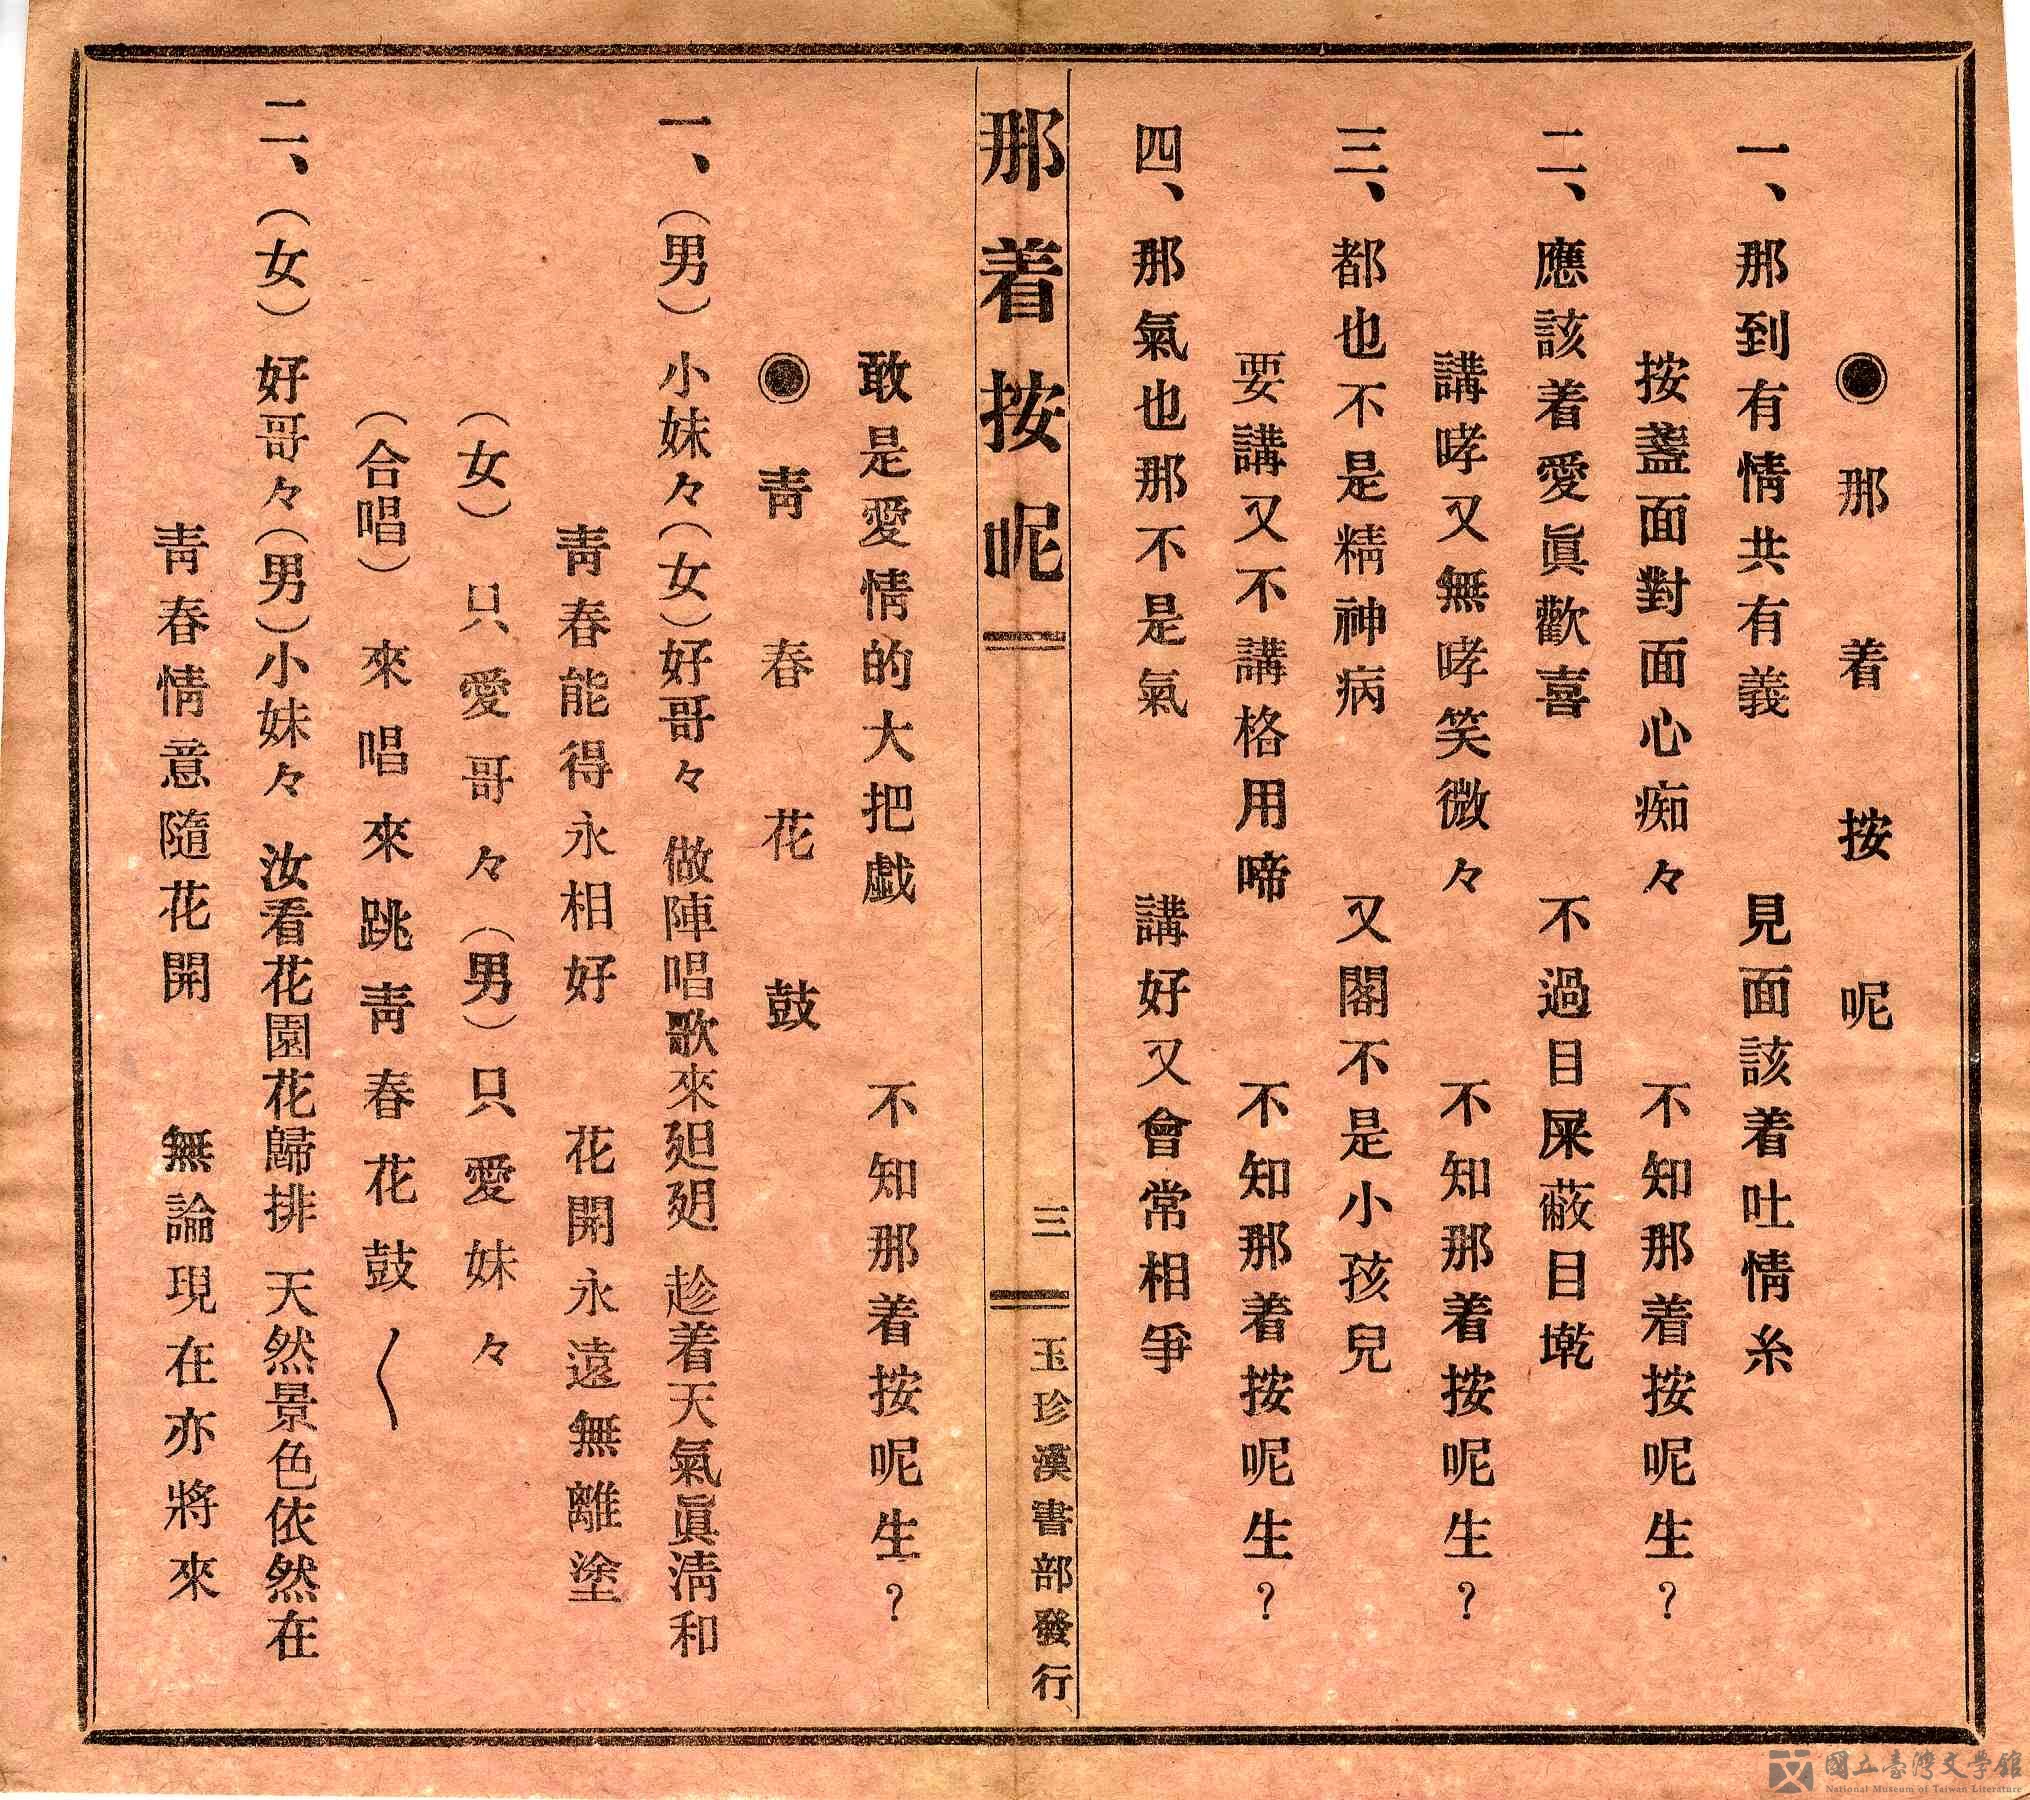 ◉那着按呢
一、那到有情共有義　見面該着吐情糸
按盞面對面心痴々　不知那着按呢生？
二、應該着愛眞歡喜　不過目屎蔽目墘
講哮又無哮笑微々　不知那着按呢生？
三、都也不是精神病　又閣不是小孩兒
要講又不講格用啼　不知那着按呢生？
四、那氣也那不是氣　講好又會常相爭
那着按呢　三　玉珍漢書部發行
敢是愛情的大把戯　不知那着按呢生？
◉青春花鼓
一、（男）小妹々（女）好哥々　做陣唱歌來廻　趁着天氣眞淸和
青春能得永相好　花開永遠無離塗
（女）只愛哥々（男）只愛妹々
（合唱）來唱來跳靑春花鼓〱
二、（女）好哥々（男）小妹々　汝看花園花歸排　天然景色依然在
靑春情意隨花開　無論現在亦將來
國立臺灣文學館
National Museum of Taiwan Literature